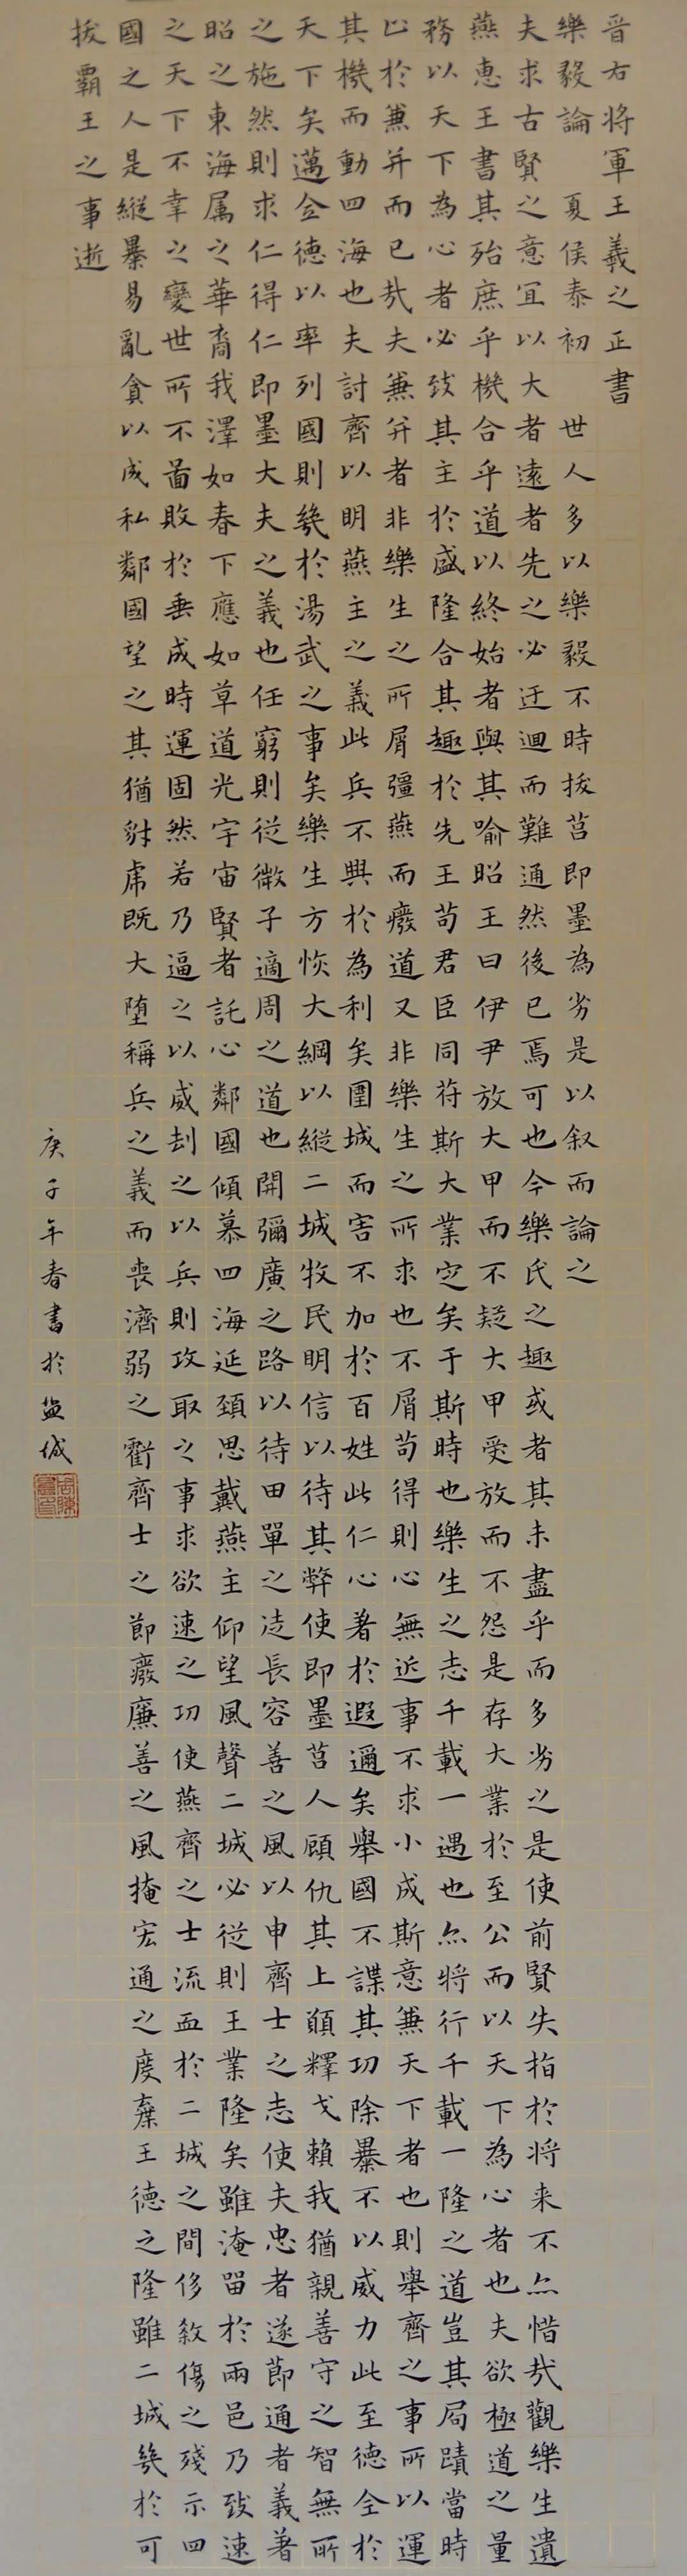 晋右将軍王羲之正書
樂毅論 夏侯泰初 世人多以樂毅不時拔莒即墨為劣是以叙而論之
夫求古賢之意宜以大者遠者先之必迂迴而難通然後已焉可也今樂氏之趣或者其未盡乎而多劣之是使前賢失指於将来不亦惜哉觀樂生遺
燕惠王書其殆庶乎機合乎道以終始者與其喻昭王曰伊尹放大甲而不疑大甲受放而不怨是存大業於至公而以天下為心者也夫欲極道之量
務以天下為心者必致其主於盛隆合其趣於先王苟君臣同苻斯大業定矣于斯時也樂生之志千載一遇也亦将行千載一隆之道豈其局蹟當時
止於兼并而已哉夫兼并者非樂生之所屑彊燕而癈道又非樂生之所求也不屑苟得則心無近事不求小成斯意兼天下者也則舉齊之事所以運
其機而動四海也夫討齊以明燕主之義此兵不興於為利矣圍城而害不加於百姓此仁心著於遐邇矣舉國不謀其功除暴不以威力此至德全於
天下矣邁全德以率列國則幾於湯武之事矣樂生方恢大綱以縱二城牧民明信以待其弊使即墨莒人顧仇其上願釋戈賴我猶親善守之智無所
之施然則求仁得仁即墨大夫之義也任窮則從微子適周之道也開彌廣之路以待田單之徒長容善之風以申齊士之志使夫忠者遂節通者義著
昭之東海属之華裔我澤如春下應如草道光宇宙賢者託心鄰國傾慕四海延頚思戴燕主仰望風聲二城必從則王業隆矣雖淹留於兩邑乃致速
之天下不幸之變世所不啚敗於垂成時運固然若乃逼之以威刧之以兵則攻取之事求欲速之功使燕齊之士流血於二城之間侈殺傷之殘示四
國之人是縱暴易亂貪以成私鄰國望之其猶豺虎既大堕稱兵之義而喪濟弱之虧齊士之節癈廉善之風掩宏通之度棄王德之隆雖二城幾於可
拔霸王之事逝
庚子年春書於盐城